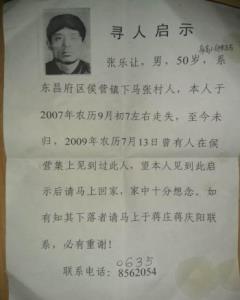 寻人启示
张乐让，男，50岁，系
东昌府区侯营镇下马张村人，本人于
2007年农历9月初7左右走失，至今未
归，2009年农历7月13日曾有人在侯
营集上见到过此人，望本人见到此启
示后请马上回家，家中十分想念。如
有知其下落者请马上于蒋庄蒋庆阳联
系，必有重谢！
0635
联系电话：8562054